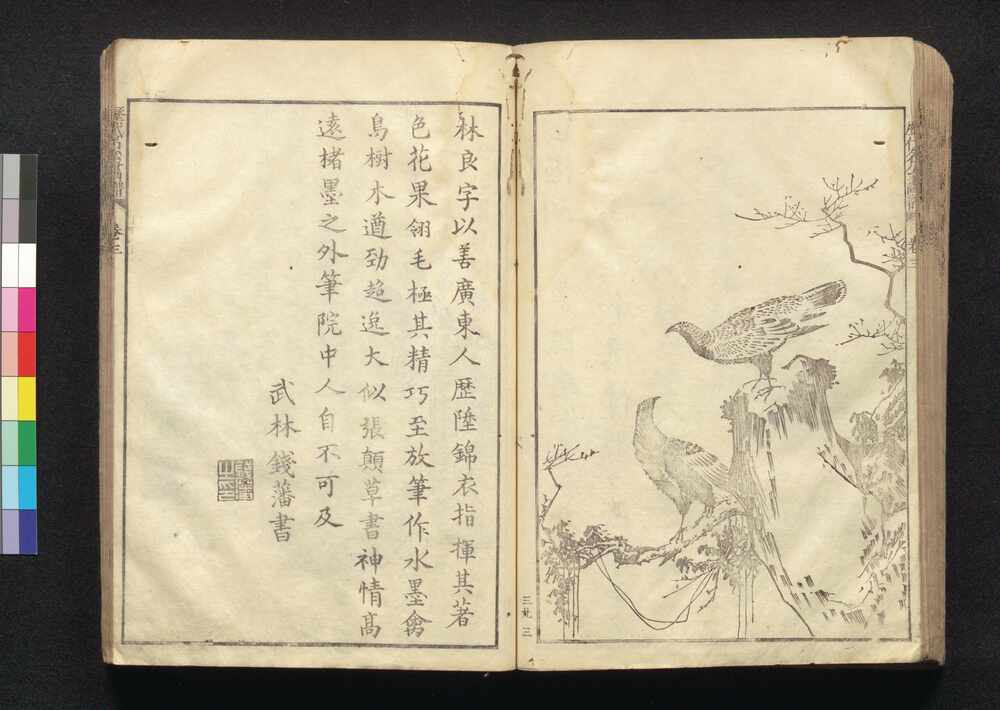 林良字以善廣東人歷陞錦衣指揮其著
色花果翎毛極其精巧至放筆作水墨禽
鳥樹木遒勁超逸大似張顛草書神情高
遠楮墨之外筆院中人自不可及
武林錢藩書
卷三
卷三